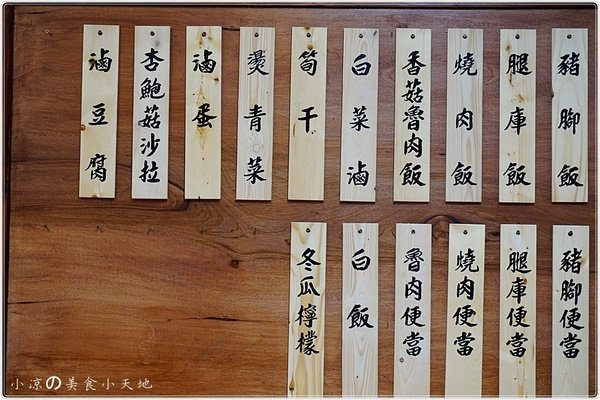 豬腳飯
腿庫飯
燒肉飯
香菇魯肉飯
白菜滷
筍干
燙青菜
滷蛋
杏鮑菇沙拉
滷豆腐
豬腳便當
腿庫便當
燒肉便當
魯肉便當
白飯
冬瓜檸檬
小涼の美食小天地